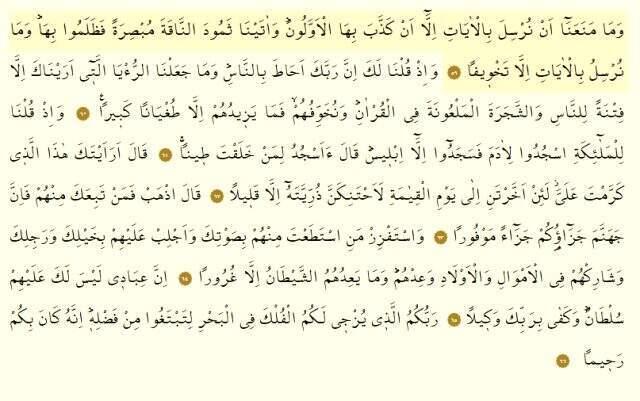 وَمَا مَنَعَنَٓا اَنْ نُرْسِلَ بِالْاٰيَاتِ اِلَّٓا اَنْ كَذَّبَ بِهَا الْاَوَّلُونَۜ وَاٰتَيْنَا ثَمُودَ النَّاقَةَ مُبْصِرَةً فَظَلَمُوا بِهَاۜ وَمَا
نُرْسِلُ بِالْاٰيَاتِ اِلَّا تَخْوٖيفًا ٥٩ وَاِذْ قُلْنَا لَكَ اِنَّ رَبَّكَ اَحَاطَ بِالنَّاسِۜ وَمَا جَعَلْنَا الرُّءْيَا الَّتٖٓى اَرَيْنَاكَ اِلَّا
فِتْنَةً لِلنَّاسِ وَالشَّجَرَةَ الْمَلْعُونَةَ فِى الْقُرْاٰنِۜ وَنُخَوِّفُهُمْۙ فَمَا يَزٖيدُهُمْ اِلَّا طُغْيَانًا كَبٖيرًاࣖ ٦٠ وَاِذْ قُلْنَا
لِلْمَلٰٓئِكَةِ اسْجُدُوا لِاٰدَمَ فَسَجَدُٓوا اِلَّٓا اِبْلٖيسَۜ قَالَ ءَاَسْجُدُ لِمَنْ خَلَقْتَ طٖينًاۚ ٦١ قَالَ اَرَاَيْتَكَ هٰذَا الَّذٖى
كَرَّمْتَ عَلَىَّۘ لَئِنْ اَخَّرْتَنِ اِلٰى يَوْمِ الْقِيٰمَةِ لَاَحْتَنِكَنَّ ذُرِّيَّتَهُٓ اِلَّا قَلٖيلًا ٦٢ قَالَ اذْهَبْ فَمَنْ تَبِعَكَ مِنْهُمْ فَاِنَّ
جَهَنَّمَ جَزَٓاؤُ۬كُمْ جَزَٓاءً مَوْفُورًا ٦٣ وَاسْتَفْزِزْ مَنِ اسْتَطَعْتَ مِنْهُمْ بِصَوْتِكَ وَاَجْلِبْ عَلَيْهِمْ بِخَيْلِكَ وَرَجِلِكَ
وَشَارِكْهُمْ فِى الْاَمْوَالِ وَالْاَوْلَادِ وَعِدْهُمْۜ وَمَا يَعِدُهُمُ الشَّيْطَانُ اِلَّا غُرُورًا ٦٤ اِنَّ عِبَادٖى لَيْسَ لَكَ عَلَيْهِمْ
سُلْطَانٌۜ وَكَفٰى بِرَبِّكَ وَكٖيلًا ٦٥ رَبُّكُمُ الَّذٖى يُزْجٖى لَكُمُ الْفُلْكَ فِى الْبَحْرِ لِتَبْتَغُوا مِنْ فَضْلِهٖۜ اِنَّهُ كَانَ بِكُمْ
رَحٖيمًا ٦٦